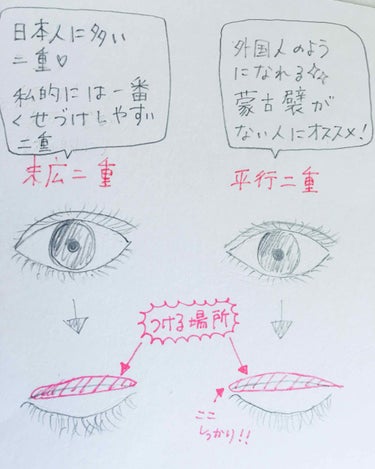 日本人に多い
二重♡
私的には一番
くせづけしやすい
二重
外国人のよう
になれる☆☆
蒙古襞が
ない人にオススメ!
末広二重
平行二重
つける場所
ここ
しっかり!!